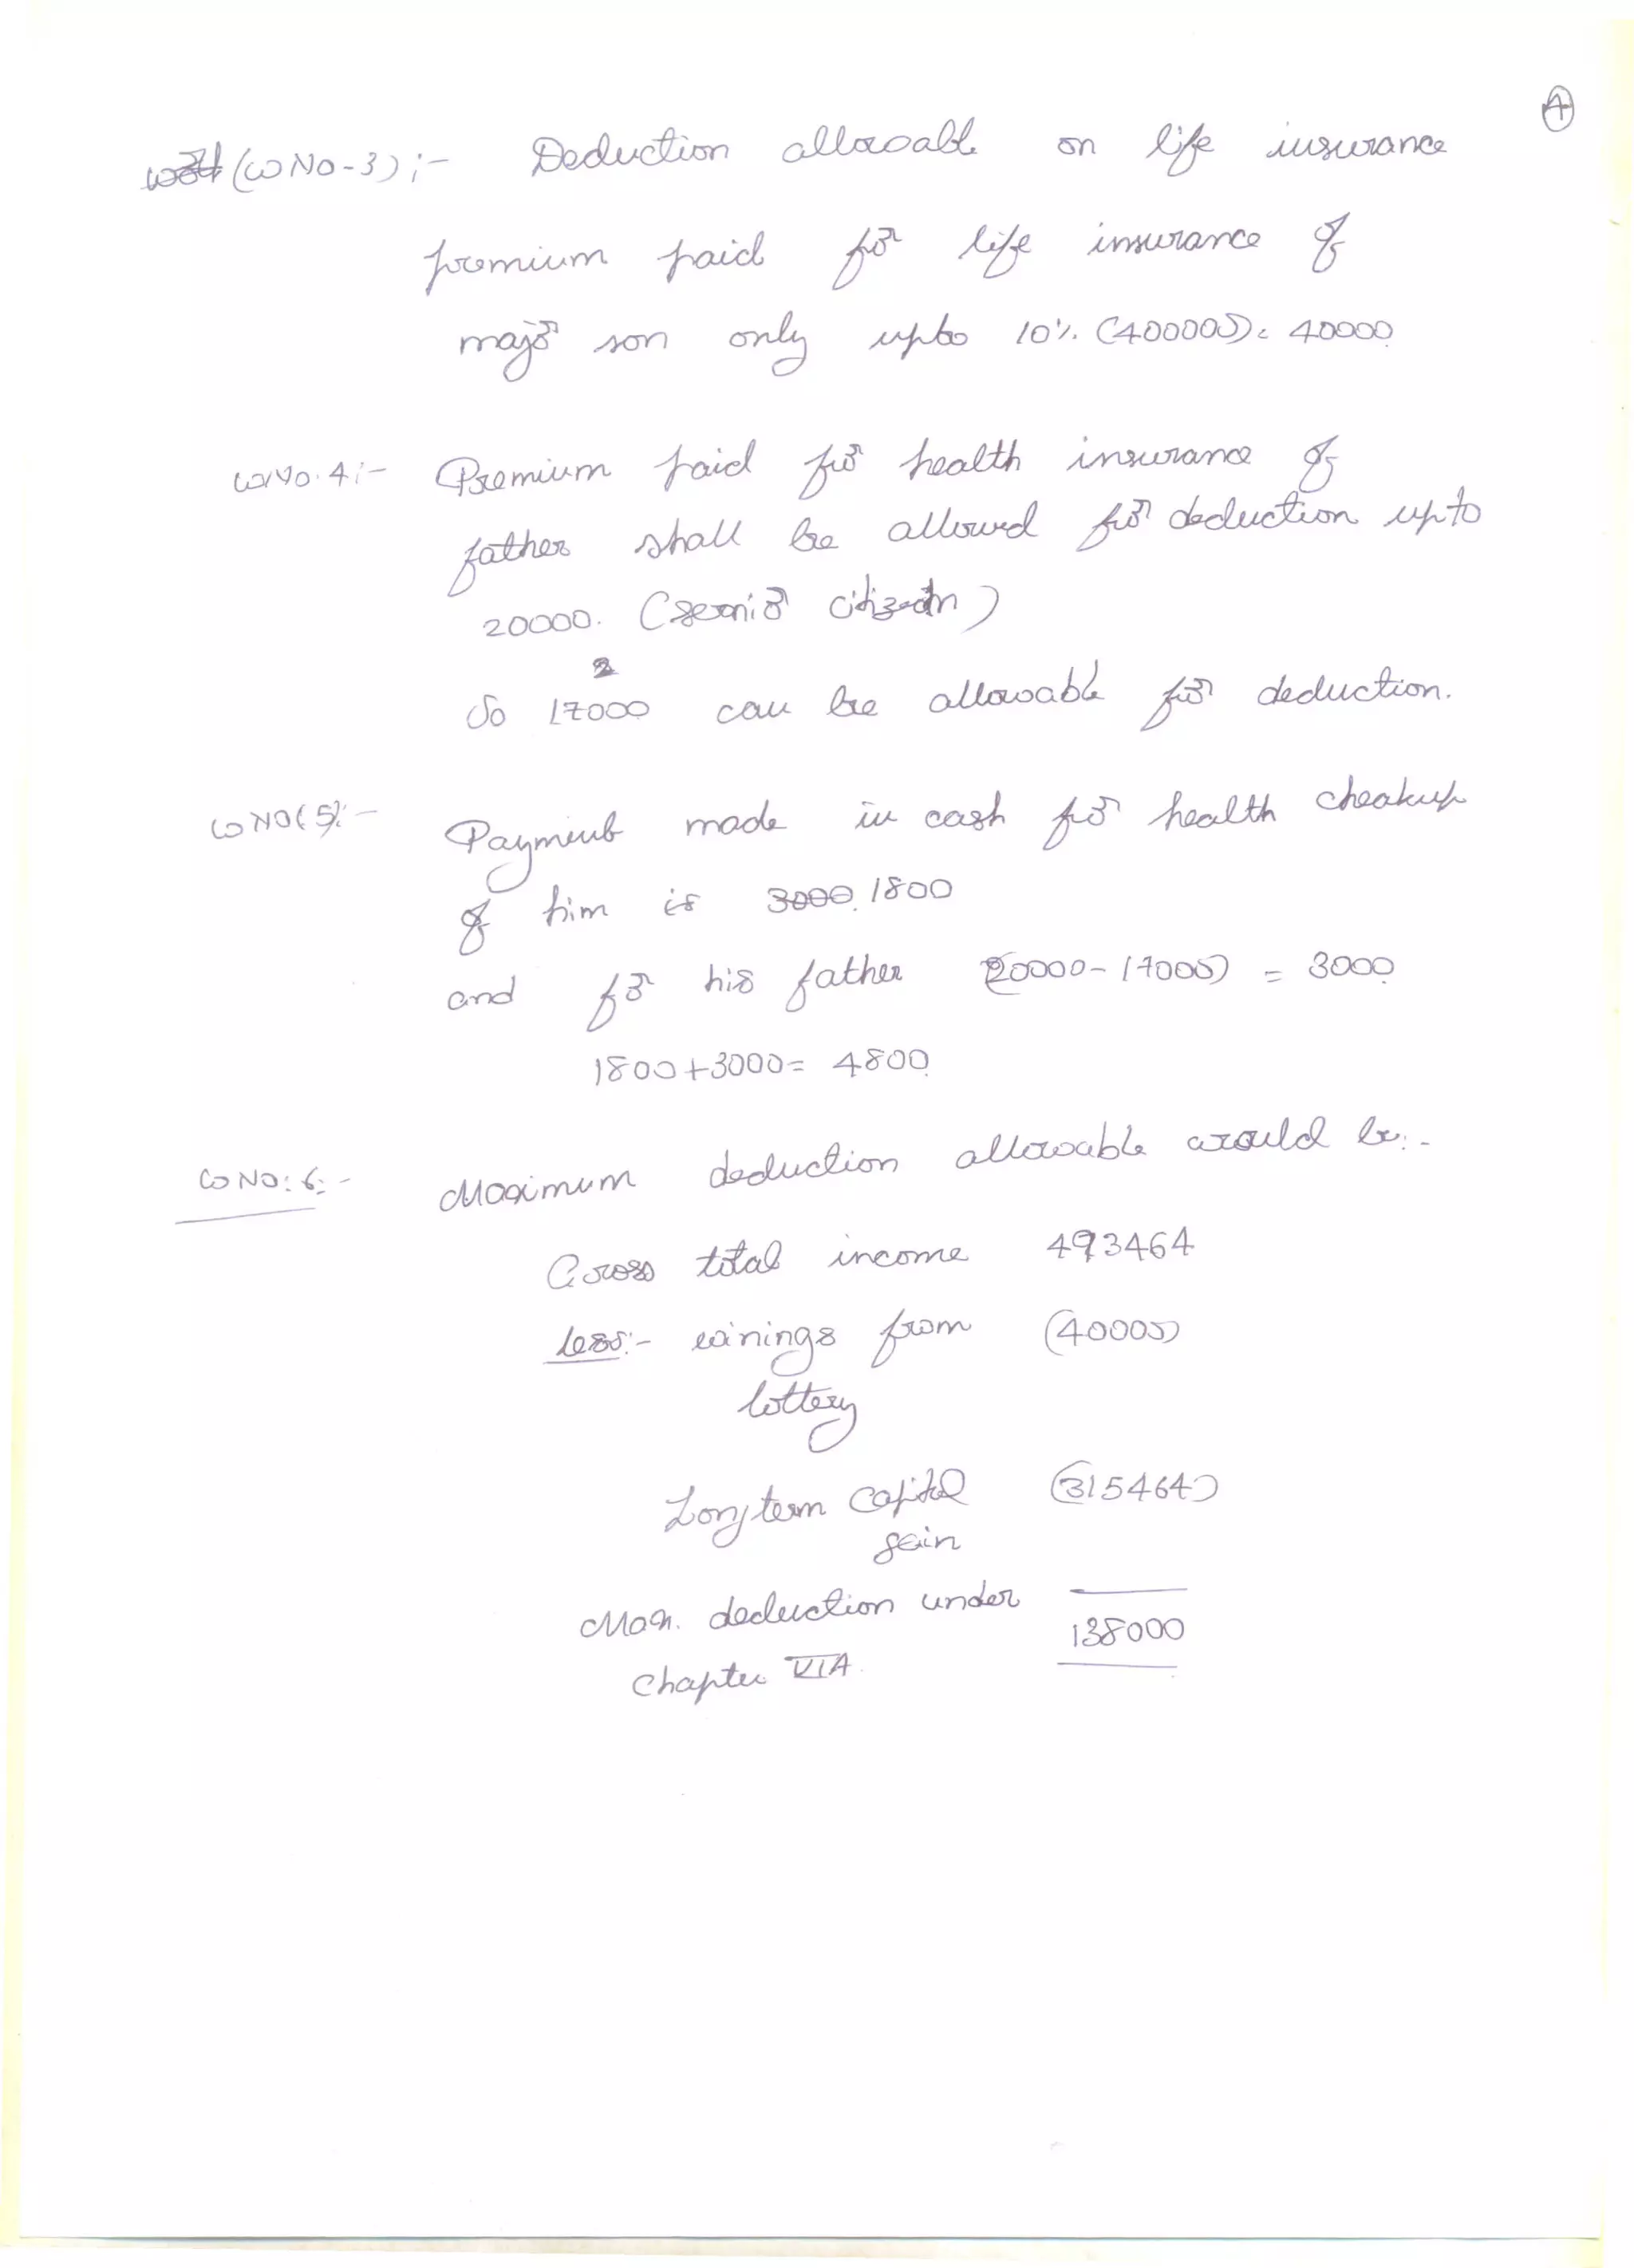 4
(WNO-3) :- Deduction allowable on life insurance
premium paid for life insurance of
major son only upto 10% (400000) = 40000
WNO.4 :- Premium paid for health insurance of
father shall be allowed for deduction upto
20000. (Senior citizen)
2
So 17000 can be allowable for deduction.
WNO(5) :- Payment made in cash for health cheakup
of him is 3000. 1800
and for his father (20000-17000) = 3000
1800+3000= 4800
WNO: 6 :- Maximum deduction allowable would be :-
Gross total income 493464
less:- winings from (40000)
lottery
Longterm capital (315464)
gain
Max. deduction under
138000
Chapter VIA.